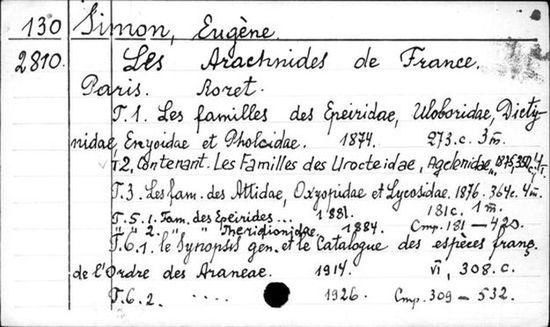 130 Simon, Eugène.
2810. Les Arachnides de France.
Paris. Roret.
T.1. Les familles des Epeiridae, Uloboridae, Dicty-
nidae, Enyoidae et Pholcidae. 1874. 273.c. 3m.
T2, Contenant. Les Familles des Urocteidae, Agelenidae, 1875,
T.3. Les fam. des Attidae, Oxyopidae et Lycosidae. 1876. 364c. 4m.
T.5.1. Fam. des Epeirides... 1881. 181c. 1m.
" " 2. " " Theridionidae. 1884. Cmp. 181 — 420.
T.6.1. le Synopsis gen. et le Catalogue des espèces franç.
de l'Ordre des Araneae. 1914. VI, 308.c.
T.6.2. .... 1926. Cmp. 309 — 532.